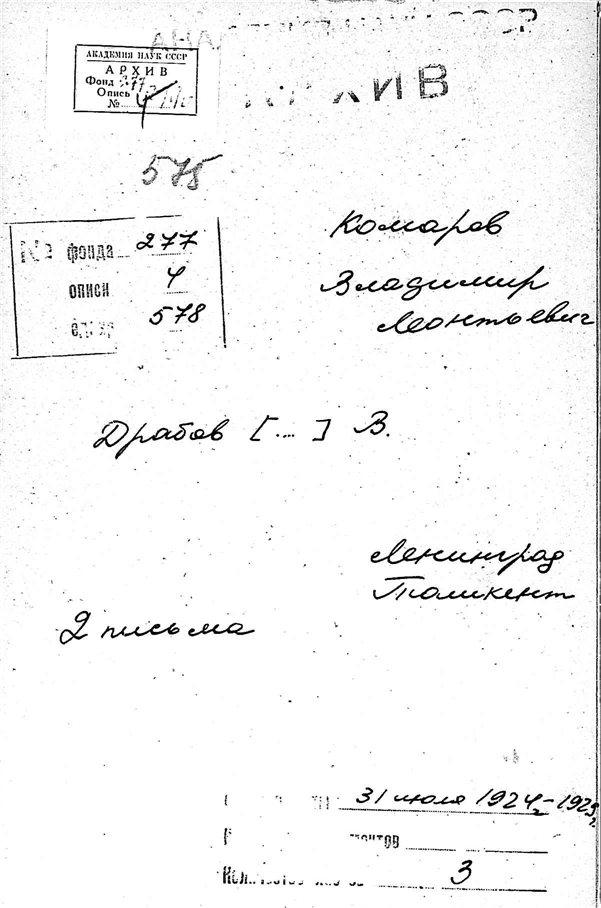 АКАДЕМИЯ НАУК СССР
АРХИВ
Фонд 277
Опись
№
578
№ фонда 277
описи 4
578
Комаров
Владимир
Леонтьевич
Драбов [...] В.
Ленинград
Ташкент
2 письма
31 июля 1924-1929
Количество
3